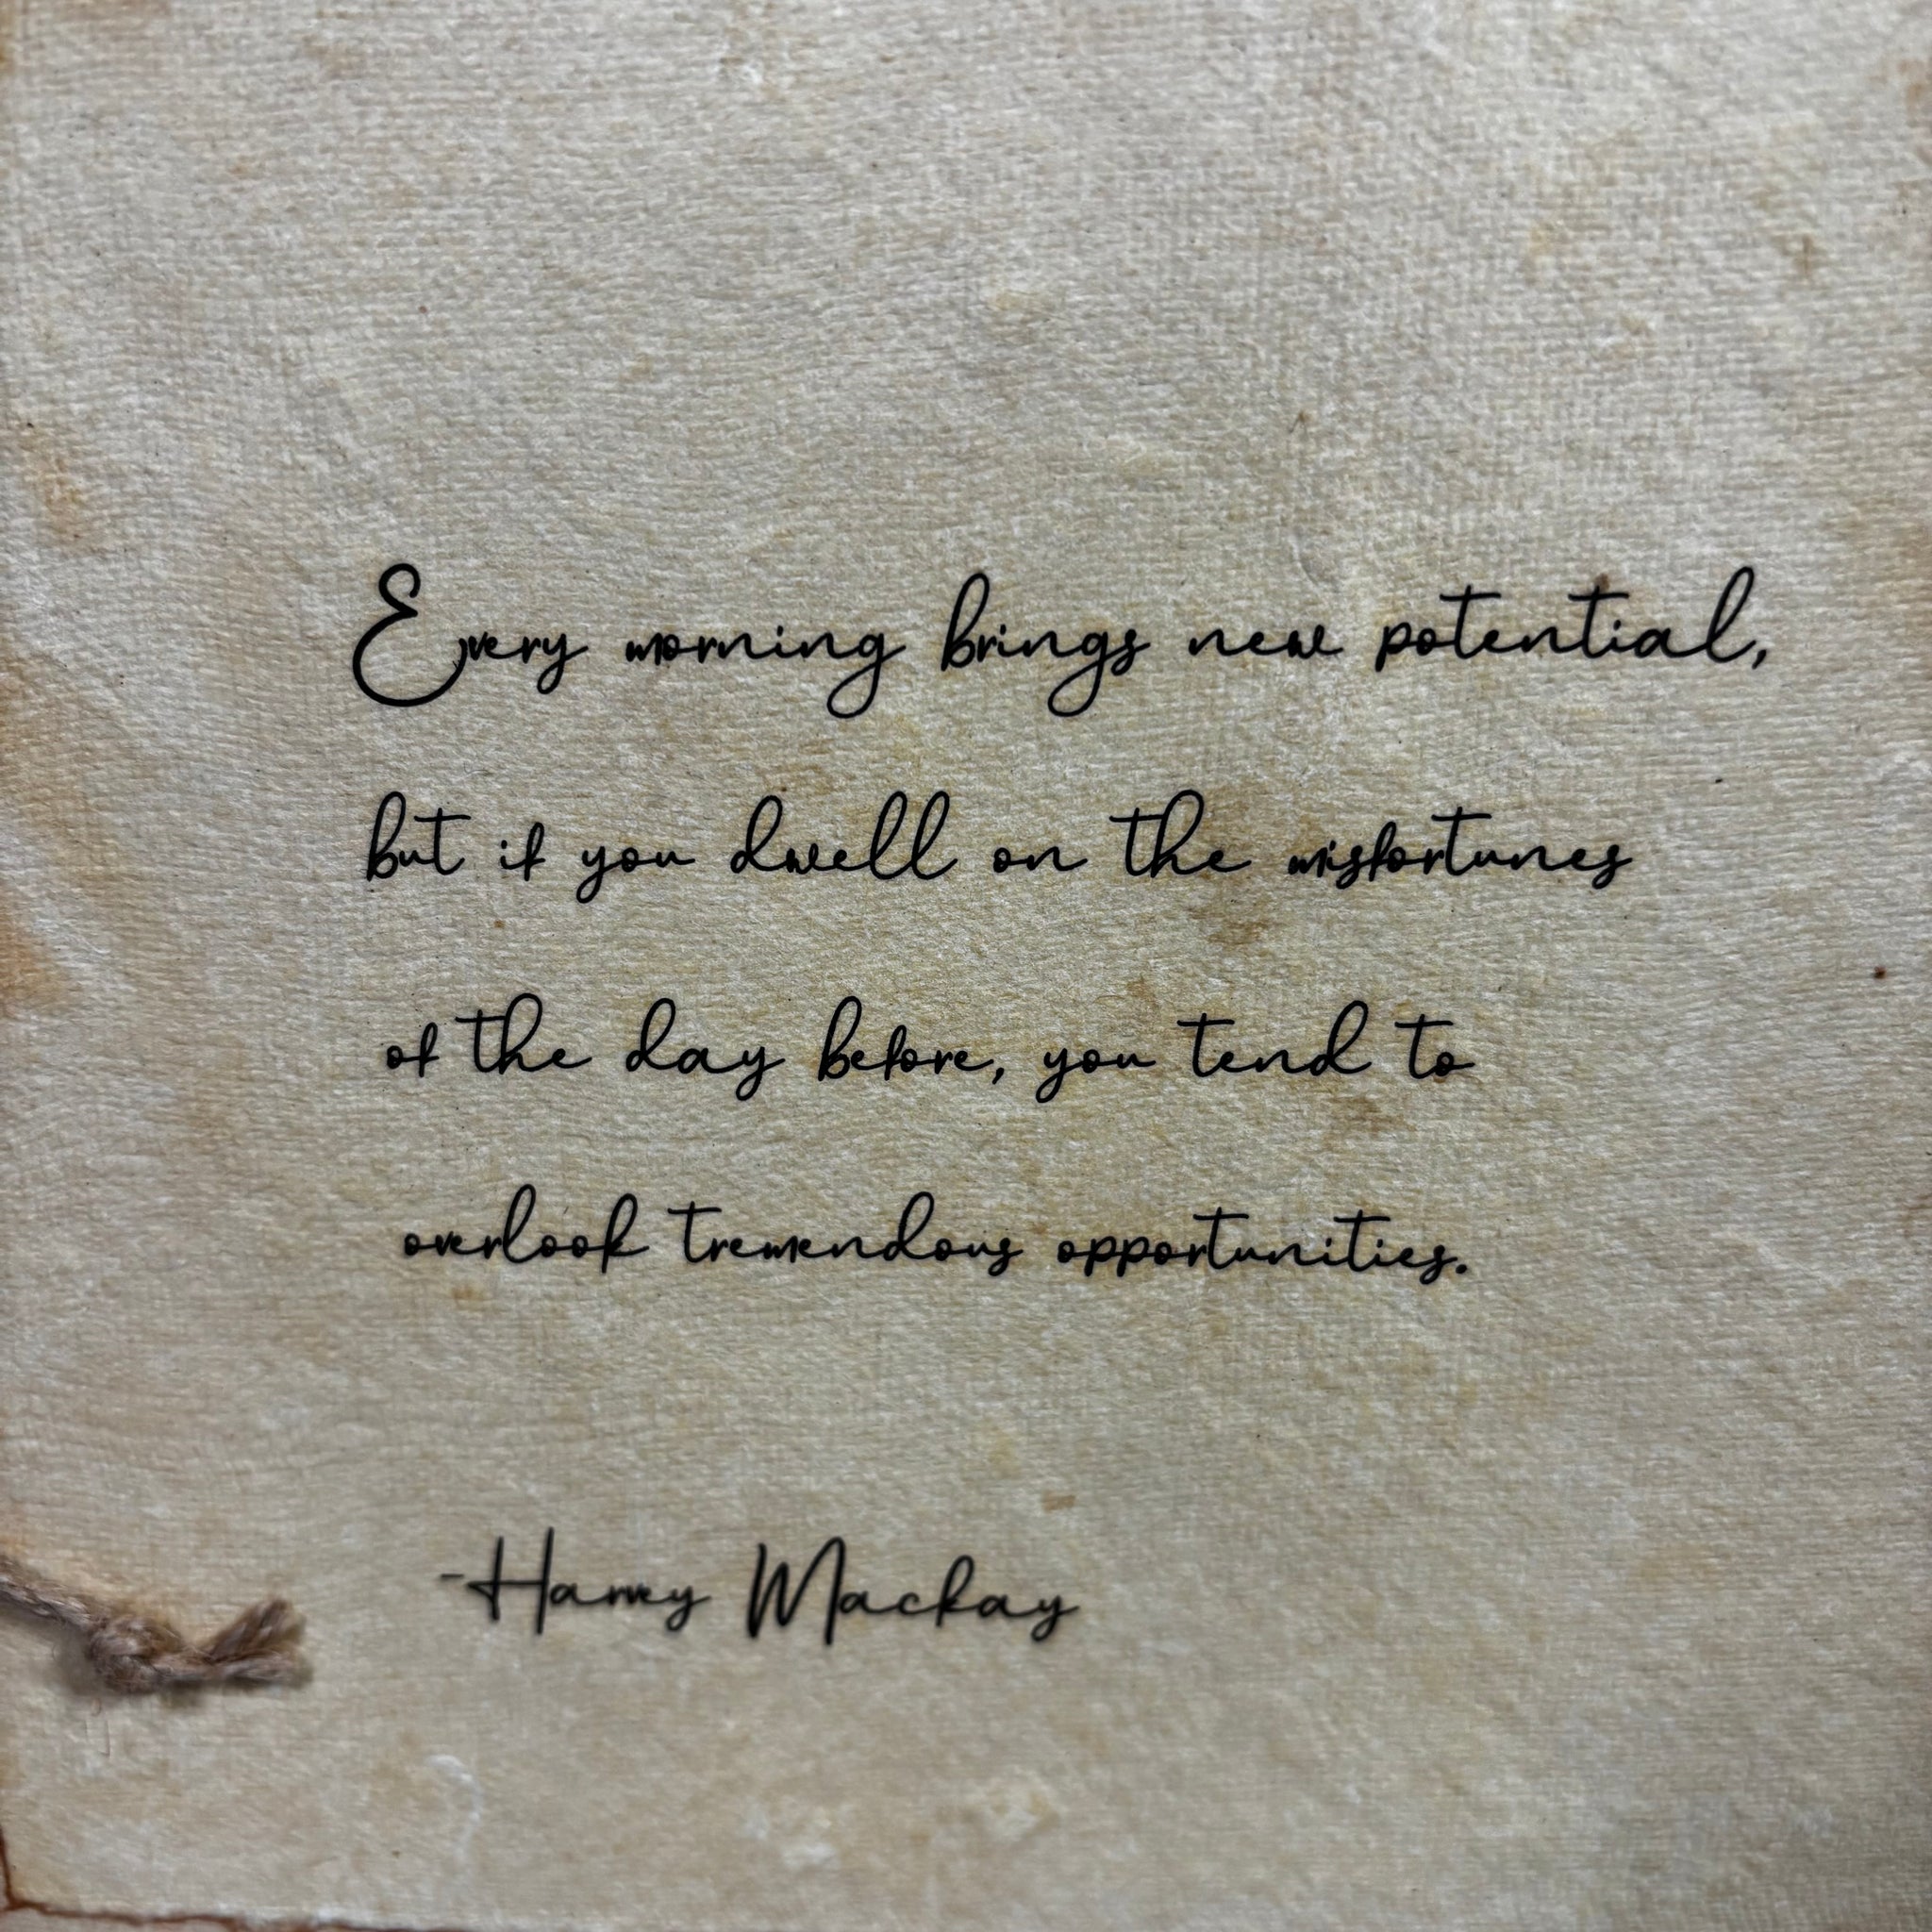 Every morning brings new potential,
but if you dwell on the misfortunes
of the day before, you tend to
overlook tremendous opportunities.
-Harvey Mackay